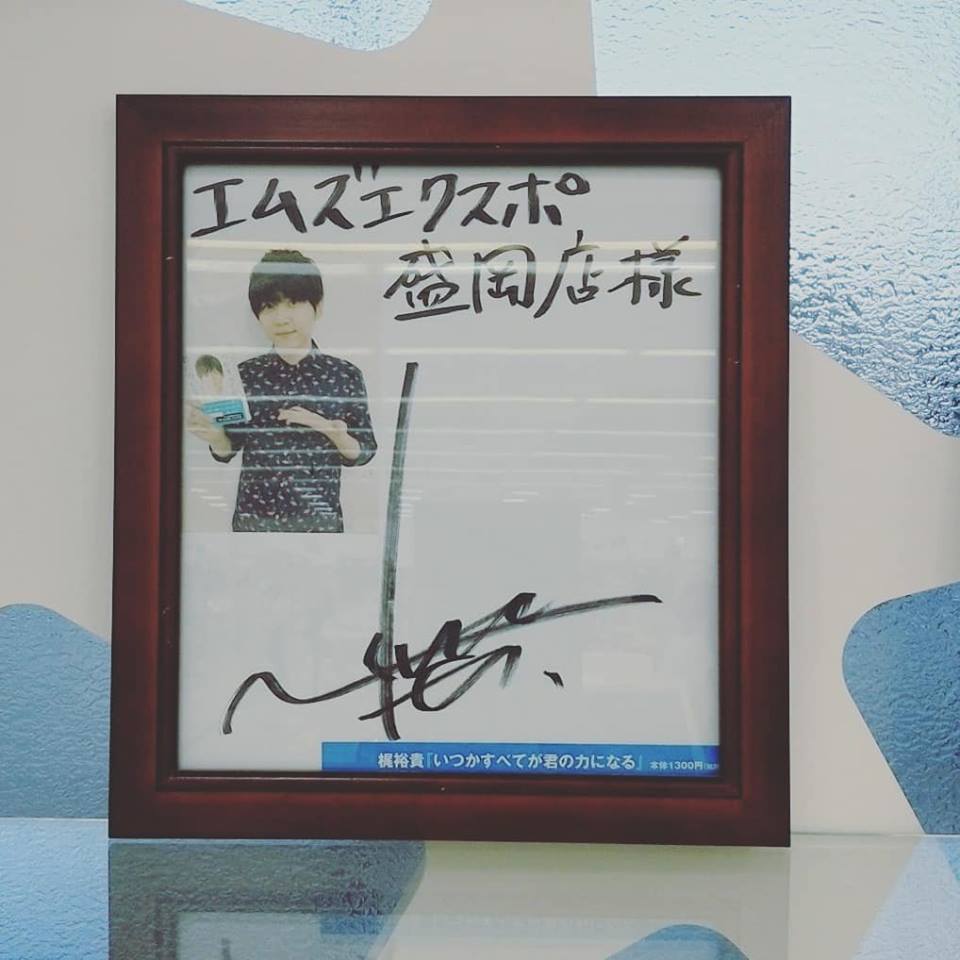 エムズエクスポ
盛岡店様
梶裕貴『いつかすべてが君の力になる』 本体1300円